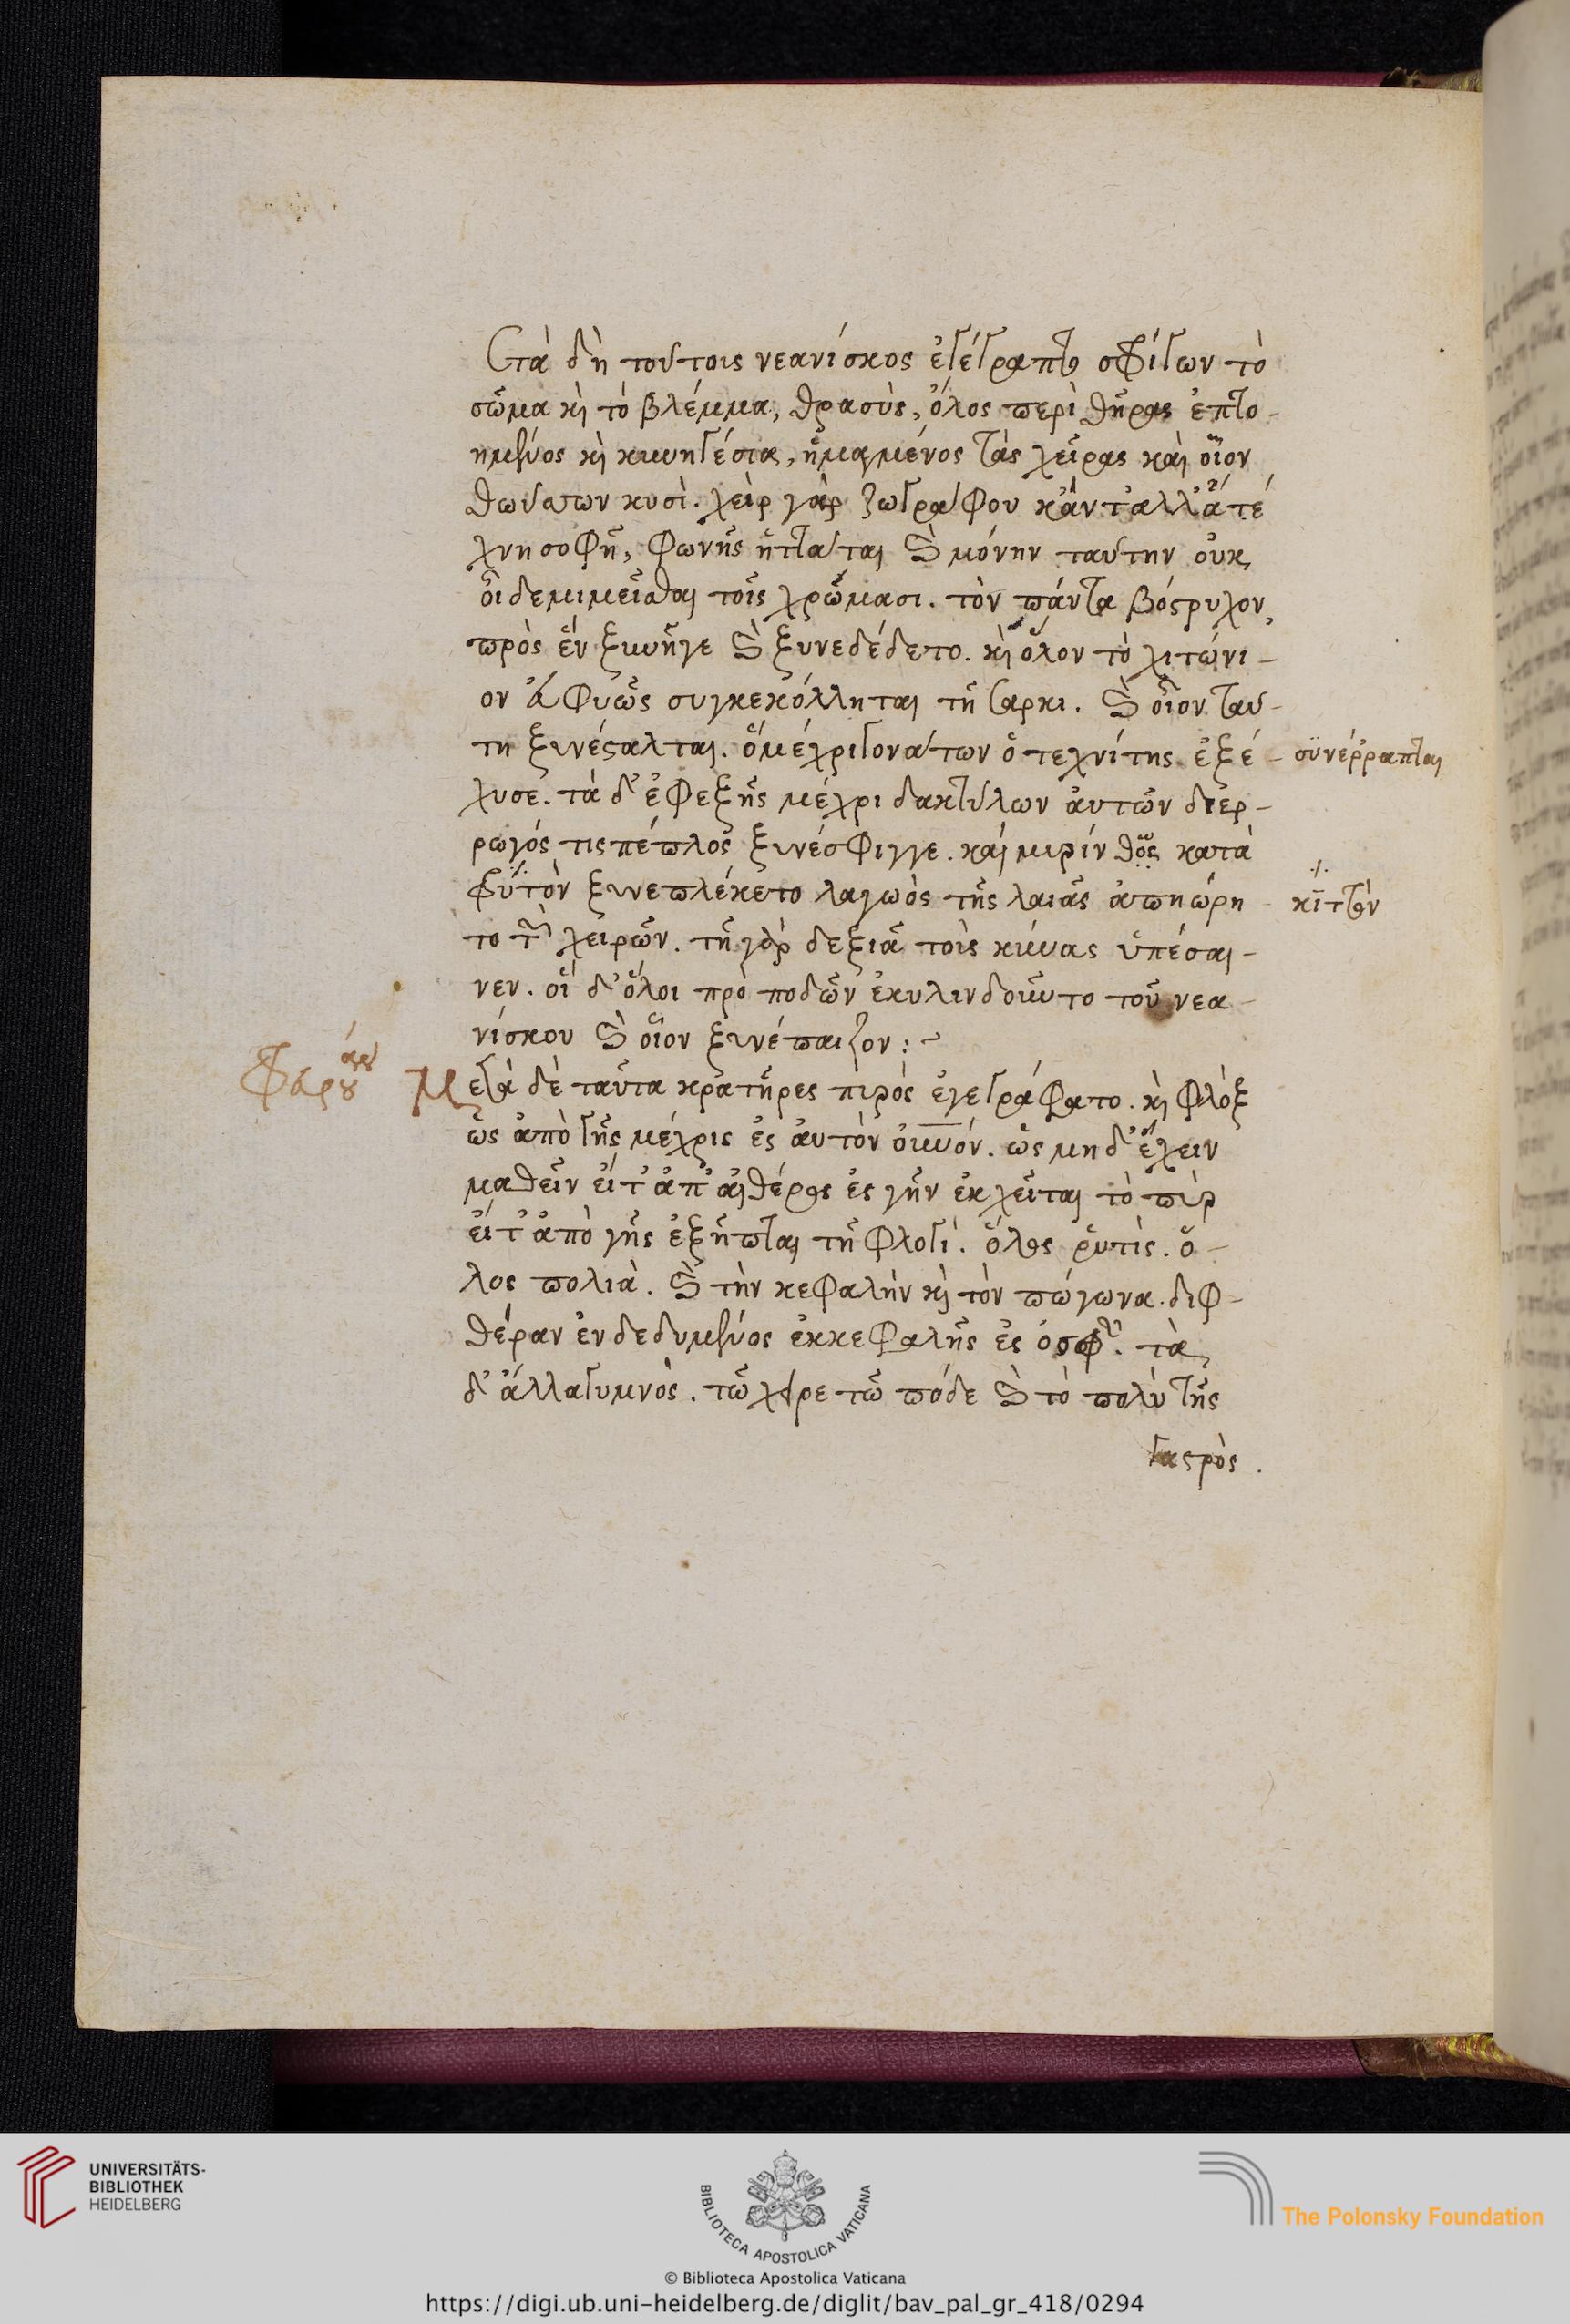 Ετὰ δὴ τούτοις νεανίσκος ἐγέγραπτο σφίγων τὸ
σῶμα καὶ τὸ βλέμμα, θρασὺς, ὅλος περὶ θήρας ἐπτο-
ημένος καὶ κυνηγέσια, ἡμαγμένος τὰς χεῖρας καὶ οἷον
θωύσων κυσὶ. χεὶρ γὰρ ζωγράφου κἂν τ' ἀλλ' ἄ τέ
χνη σοφὴ, φωνῆς ἥτταται καὶ μόνην ταύτην οὐκ
οἶδε μιμεῖσθαι τοῖς χρώμασι. τὸν πάντα βόστρυχον,
πρὸς ἓν ξυνῆγε καὶ ξυνεδέδετο. καὶ ὅλον τὸ χιτώνι-
ον ἀφυῶς συγκεκόλληται τῇ σαρκι. καὶ οἷον ταύ-
τη ξυνέσταλται. ὃ μέχρι γονάτων ὁ τεχνίτης ἐξέ-
συνέρραπται
χυσε. τὰ δ' ἐφεξῆς μέχρι δακτύλων αὐτῶν διερ-
ρωγός τις πέπλος ξυνέσφιγγε. καὶ μιρίνθος κατὰ
φυτὸν ξυνεπλέκετο λαγωὸς τῆς λαιᾶς ἀπῃώρη
κιττὸν
το τῶν χειρῶν. τῇ γὰρ δεξιᾷ τοὺς κύνας ὑπέσαι-
νεν. οἳ δ' ὅλοι πρὸ ποδῶν ἐκυλινδοῦντο τοῦ νεα-
νίσκου καὶ οἷον ξυνέπαιζον :~
Μετὰ δὲ ταῦτα κρατῆρες πυρὸς ἐγεγράφατο. καὶ φλὸξ
ὡς ἀπὸ γῆς μέχρις ἐς αὐτὸν οὐνόν. ὡς μηδ' ἔχειν
μαθεῖν εἴτ' ἀπ' αἰθέρος ἐς γῆν ἐκχεῖται τὸ πῦρ
εἴτ' ἀπὸ γῆς ἐξῆπται τῇ φλογὶ. ὅλος ῥυτὶς. ὅ-
λος πολιὰ. καὶ τὴν κεφαλὴν καὶ τὸν πώγωνα. διφ-
θέραν ἐνδεδυμένος ἐκ κεφαλῆς ἐς ὀσφὺν. τὰ
δ' ἄλλα γυμνὸς. τὼ χεῖρε τὼ πόδε καὶ τὸ πολὺ τῆς
γαστρὸς.
UNIVERSITÄTS-
BIBLIOTHEK
HEIDELBERG
BIBLIOTECA APOSTOLICA VATICANA
The Polonsky Foundation
© Biblioteca Apostolica Vaticana
https://digi.ub.uni-heidelberg.de/diglit/bav_pal_gr_418/0294